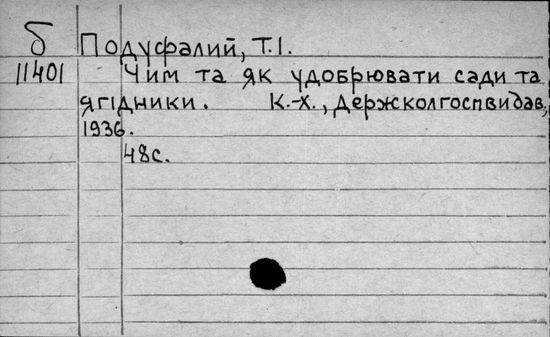 б Подусфалий, Т.І.
11401 Чим та як удобрювати сади та
ягідники. К.-Х., Держколгоспвидав,
1936.
48с.